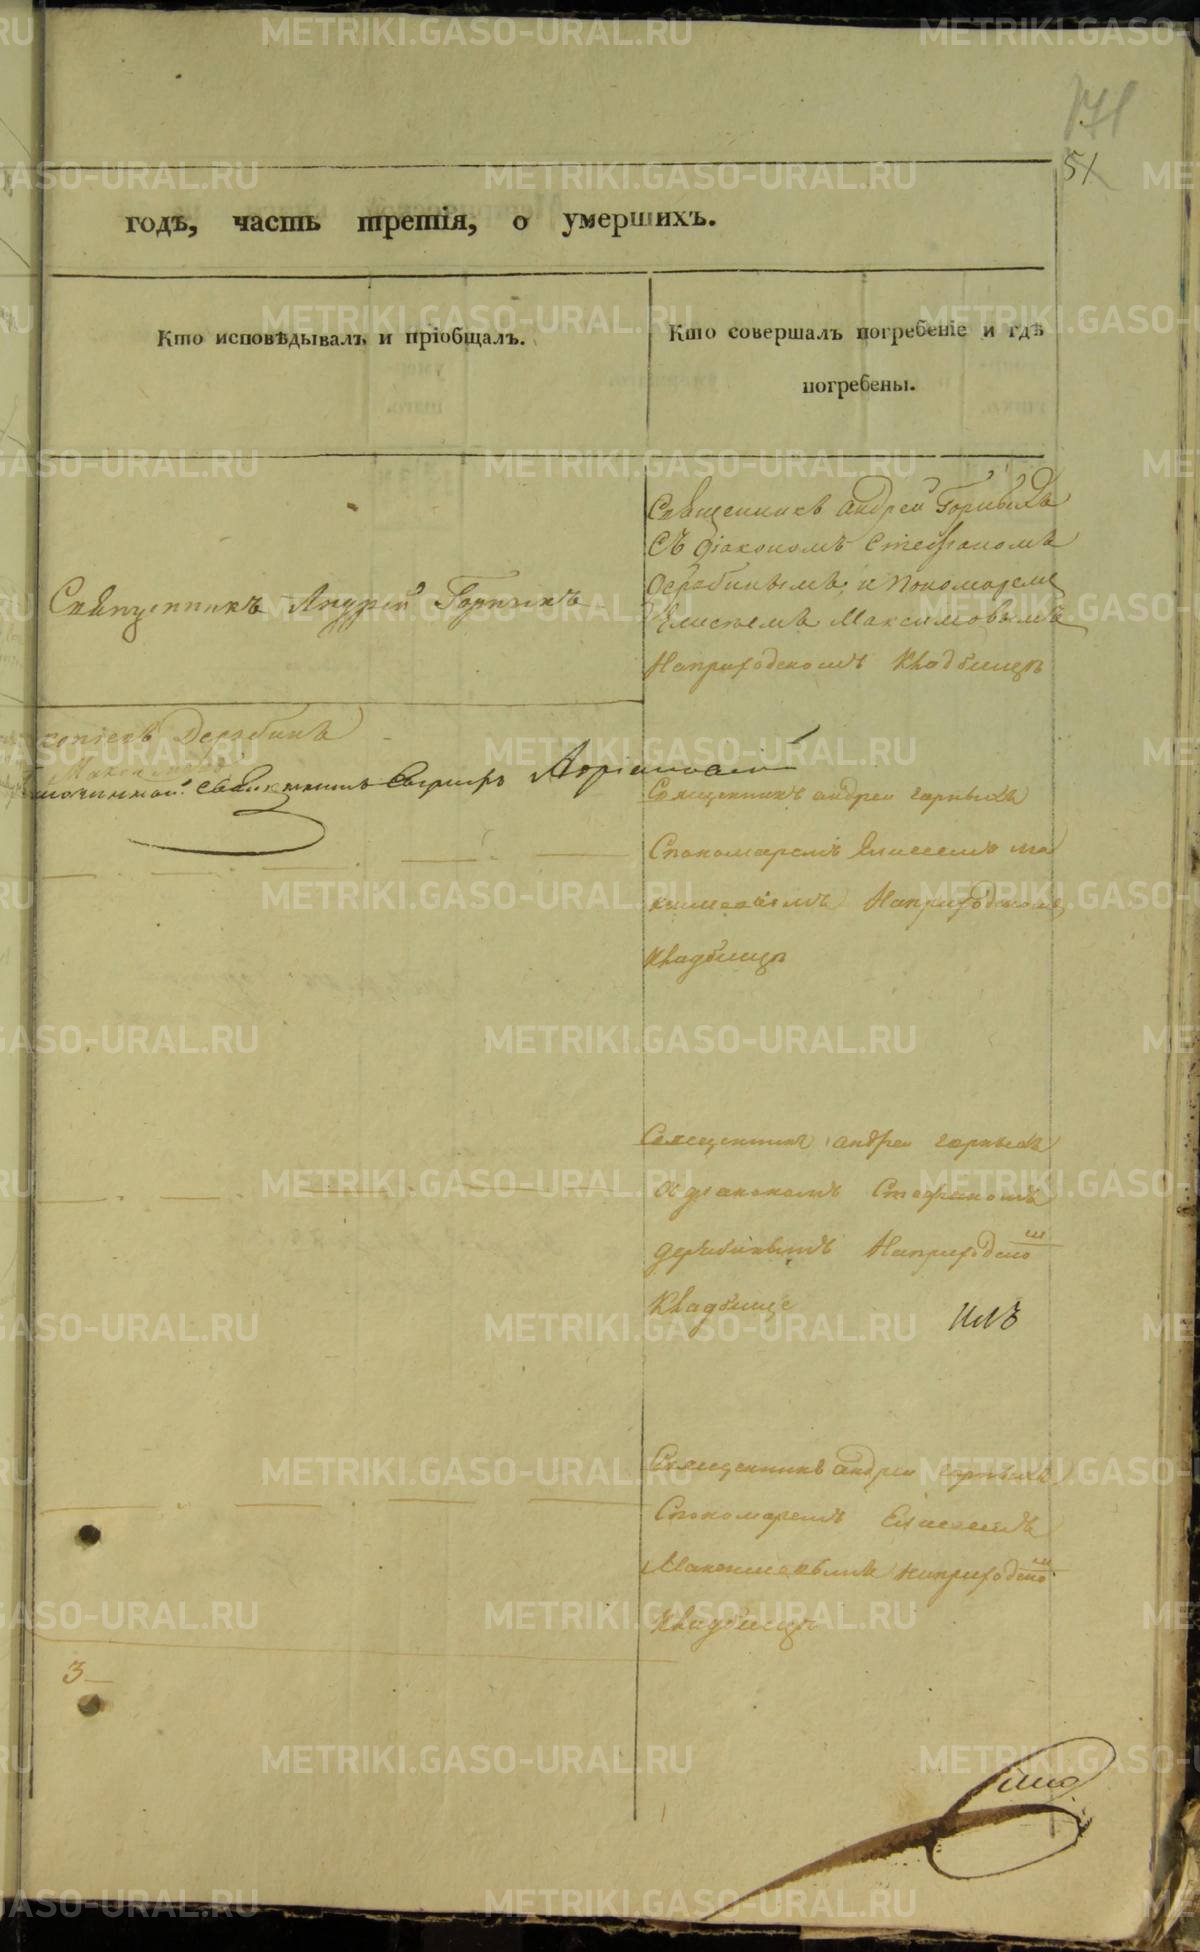 171
51
годъ, часть третія, о умершихъ.
Кто исповѣдывалъ и пріобщалъ.
Кто совершалъ погребеніе и гдѣ
погребены.
Священникъ Андрей Горныхъ
Священникъ Андрей Горныхъ
съ діакономъ Стефаномъ
Дерябинымъ и пономаремъ
Елисеемъ Максимовымъ
Наприходскомъ Кладбищѣ
Дерябинъ
Священникъ андреи горныхъ
Спономаремъ Елисеемъ Ма
Наприходскомъ
Кладбищѣ
Священникъ андреи горныхъ
съ діакономъ Стефаномъ
дерябинымъ Наприходско м
Кладбище
Священникъ андреи горныхъ
Спономаремъ Елисеемъ
Максимовымъ наприходско м
Кладбищѣ
3
METRIKI.GASO-URAL.RU